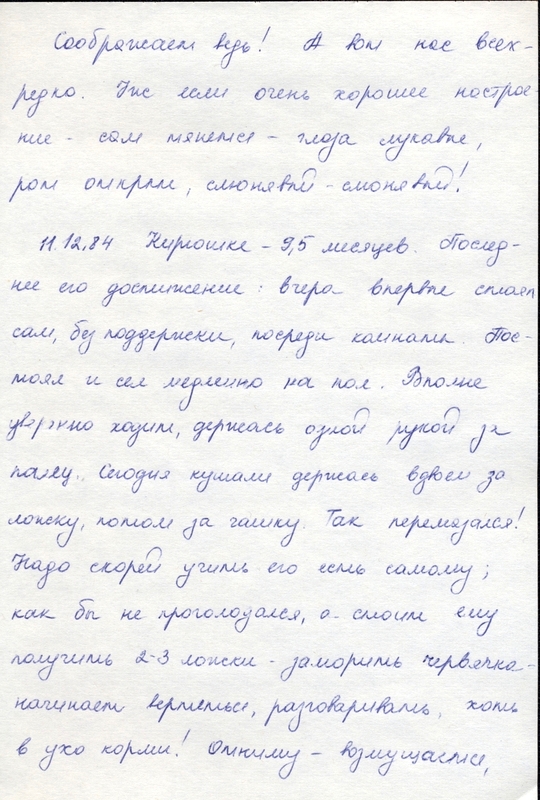 Соображаем ведь! А вот нас всех -
редко. Уж если очень хорошее настрое-
ние - сам тянется - глаза лукавые,
рот открыт, слюнявый-слюнявый!
11.12.84 Кирюшке - 9,5 месяцев. Послед-
нее его достижение: вчера впервые стоял
сам, без поддержки, посреди комнаты. Пос-
тоял и сел медленно на пол. Вполне
уверенно ходит, держась одной рукой за
палец. Сегодня кушали держась вдвоем за
ложку, потом за чашку. Так перемазался!
Надо скорей учить его есть самому;
как бы не проголодался, а стоит ему
получить 2-3 ложки - заморить червячка -
начинает вертеться, разговаривать, хоть
в ухо корми! Отниму - возмущается,